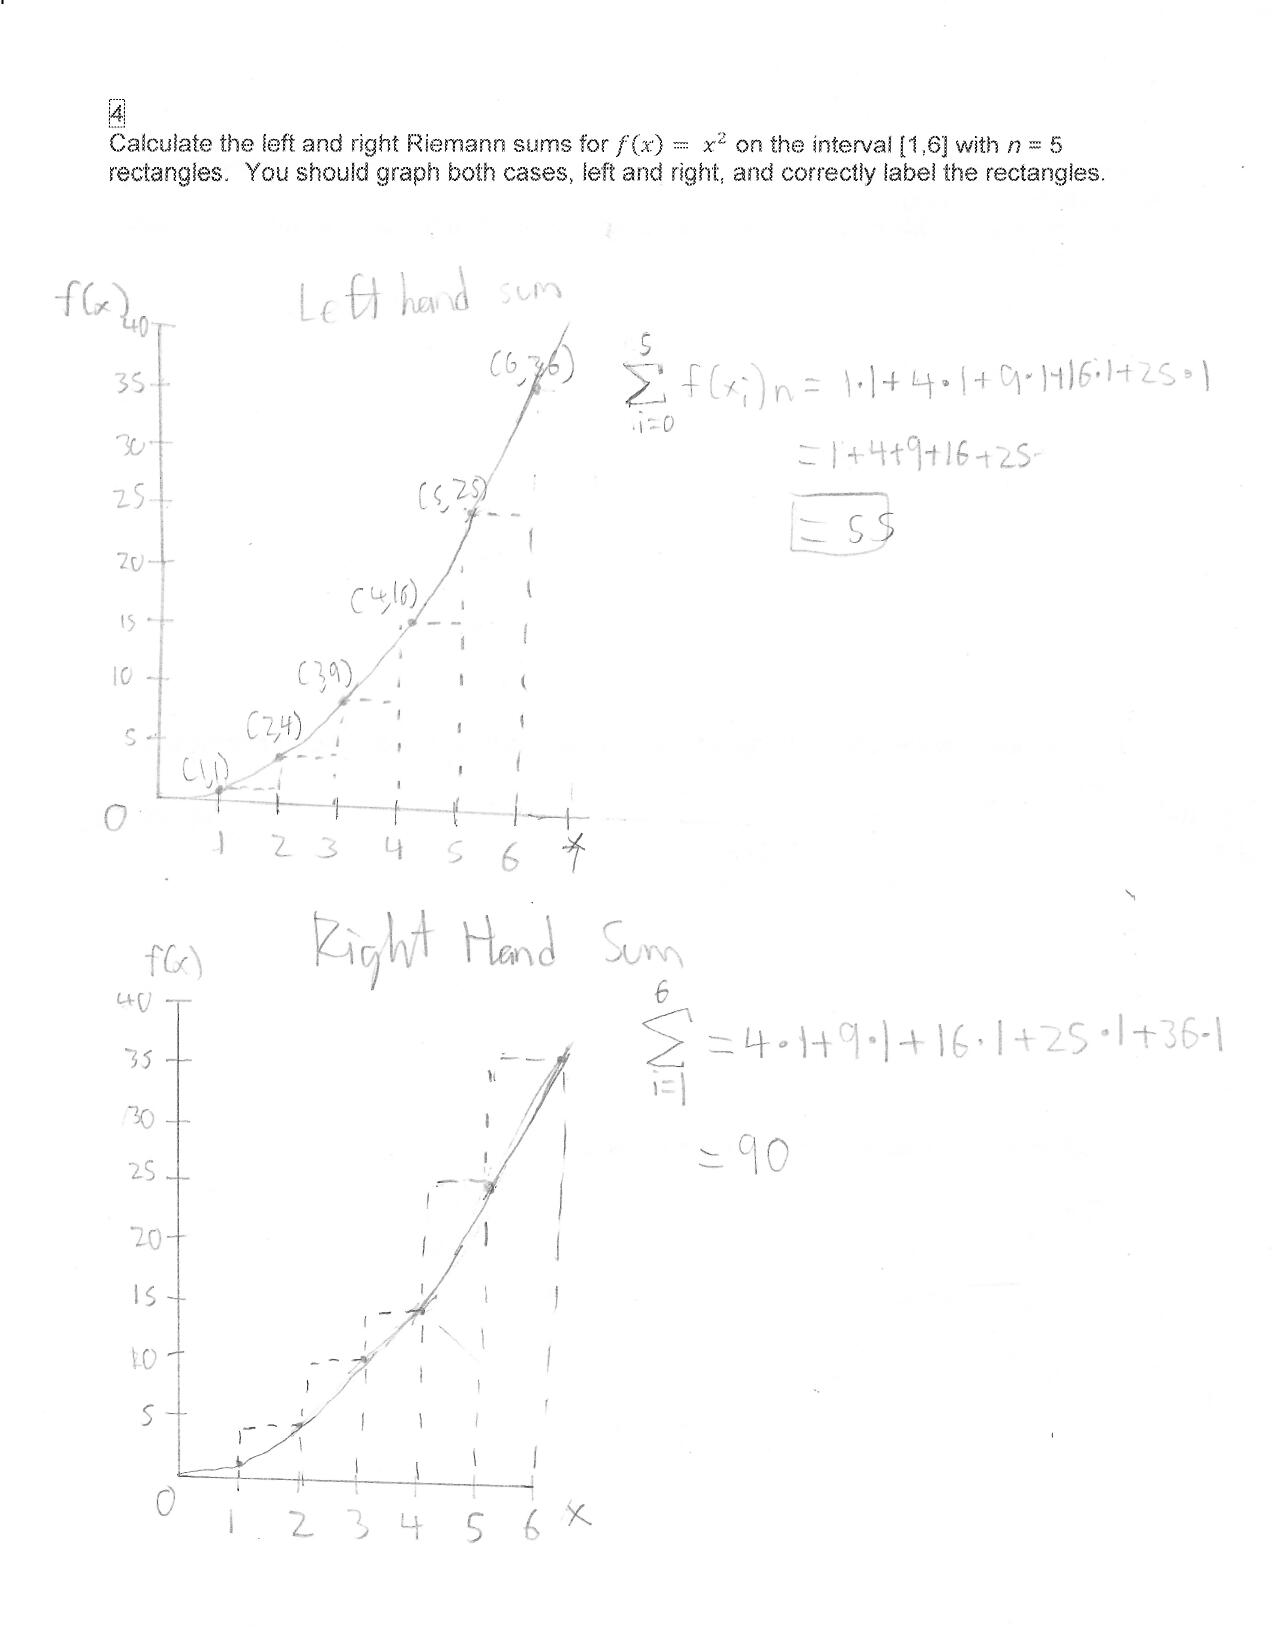 4
Calculate the left and right Riemann sums for f(x) = x² on the interval [1,6] with n = 5
rectangles. You should graph both cases, left and right, and correctly label the rectangles.
Left hand sum
f(x)
40
35
30
25
20
15
10
5
0
1 2 3 4 5 6
(6,36)
(5,25)
(4,16)
(3,9)
(2,4)
(1,1)
5
∑ f(xᵢ)n = 1·1+4·1+9·1+16·1+25·1
i=0
=1+4+9+16+25
= 55
Right Hand Sum
f(x)
40
35
30
25
20
15
10
5
0
1 2 3 4 5 6 x
6
∑ =4·1+9·1+16·1+25·1+36·1
i=1
= 90